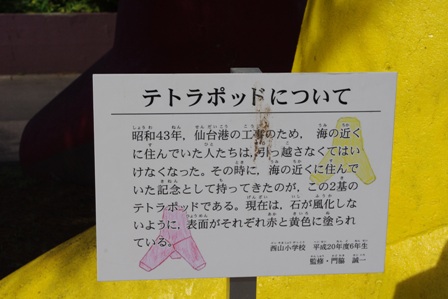 テトラポッドについて
昭和43年，仙台港の工事のため，海の近く
に住んでいた人たちは，引っ越さなくてはい
けなくなった。その時に，海の近くに住んで
いた記念として持ってきたのが，この2基の
テトラポッドである。現在は，石が風化しな
いように，表面がそれぞれ赤と黄色に塗られ
ている。
西山小学校　平成20年度6年生
監修・門脇　誠一